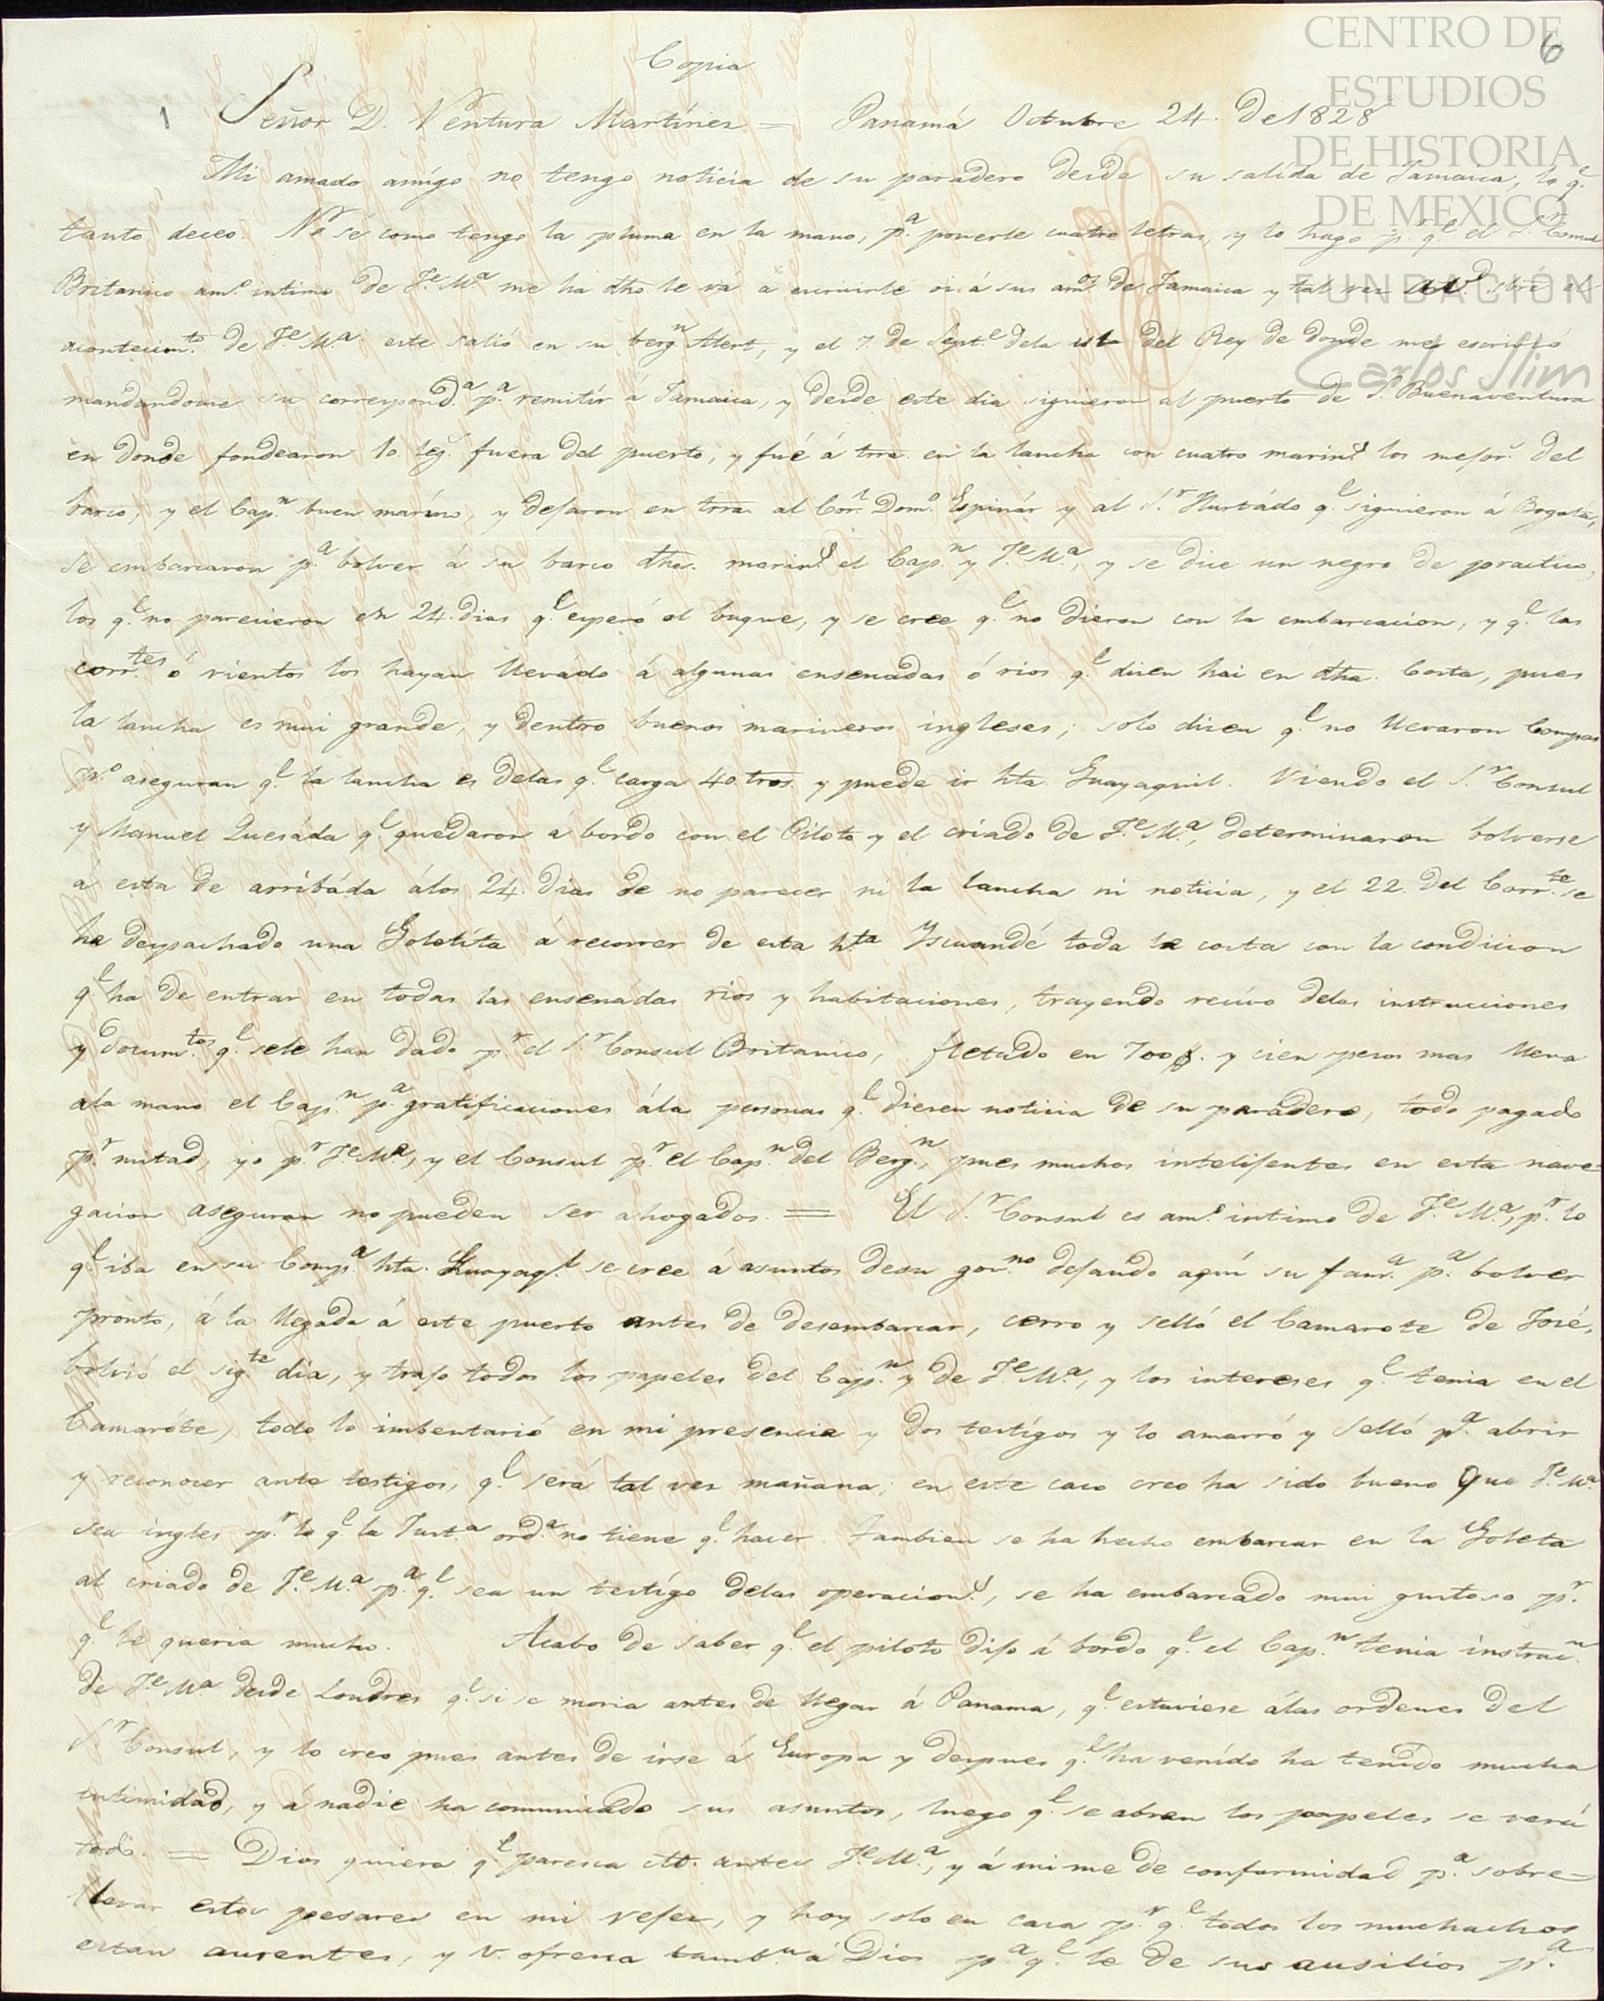 CENTRO DE
ESTUDIOS
DE HISTORIA
DE MEXICO
FUNDACIÓN
Carlos Slim
6
Copia
1 Señor D. Ventura Martínez = Panamá Octubre 24. de 1828
Mi amado amígo no tengo noticia de su paradero desde su salída de Jamaica, lo q.e
tanto deceo. No sé como tengo la pluma en la mano, p.a ponerle cuatro letras, y lo hago p.r q.e el S.r Consul
Britanico am.o intimo de J.e M.a me ha dho. le vá á escrivirle oi á sus am.os de Jamaica y tal vez a V. sbre el
acontecim.to de J.e M.a este salió en su berg.n Alert, y el 7. de Sept.e dela isla del Rey de donde me escrivió
mandandome su correspond.a p.a remitír á Jamaica, y desde este dia siguieron al puerto de S. Buenaventura
en donde fondearon 10. leg.s fuera del puerto, y fué á trra. en la lancha con cuatro marin.s los mejor.s del
barco, y el Cap.n buen maríno, y dejaron en trra. al Cor.l Dom.o Espinár y al S.r Hurtádo q.e siguieron á Bogotá,
se embarcaron p.a bolver á su barco dhos. marin.s el Cap.n y J.e M.a, y se dice un negro de practico,
los q.e no parecieron en 24. dias q.e esperó el buque, y se cree q.e no dieron con la embarcacion, y q.e las
corr.tes ó vientos los hayan llevádo á algunas ensenadas ó rios q.e dicen hai en dha. Costa, pues
la lancha es mui grande, y dentro buenos marineros ingleses; solo dicen q.e no llevaron Compas
p.o aseguran q.e la lancha es delas q.e carga 40. tros. y puede ir hta. Guayaquil. Viendo el S.r Consul
y Manuel Quesáda q.e quedaron a bordo con el Piloto y el criado de J.e M.a, determinaron bolverse
á esta de arribáda álos 24. dias de no parecer ni la lancha ni noticia, y el 22. del Corr.te se
ha despachado una Goletíta á recorrer de esta hta Yscuandé toda la costa con la condicion
q.e ha de entrar en todas las ensenadas rios y habitaciones, trayendo recívo delas instrucciones
y docum.tos q.e sele han dado p.r el S.r Consul Britanico, fletado en 700 $. y cien pesos mas lleva
ala mano el Cap.n p.a gratificaciones ála personas q.e diesen noticia de su paradero, todo pagado
p.r mitad, yo p.r J.e M.a, y el Consul p.r el Cap.n del Berg.n, pues muchos intelijentes en esta nave-
gacion aseguran no pueden ser ahogados. = El S.r Consul es am.o intimo de J.e M.a, p.r lo
q.e iba en su Comp.a hta. Guayaq.l se cree á asuntos desu gov.no dejando aquí su fam.a p.a bolver
pronto, á la llegada á este puerto antes de desembarcar, cerro y selló el Camarote de José,
bolvió el sig.te día, y trajo todos los papeles del Cap.n y de J.e M.a, y los intereses q.e tenia en el
Camaróte, todo lo imbentarió en mi presencia y dos testígos y lo amarró y selló p.a abrir
y reconocer ante testigos, q.e será tal vez mañana; en este caso creo ha sido bueno que J.e M.a
sea ingles p.r lo q.e la Just.a ord.a no tiene q.e hacer. Tambien se ha hecho embarcar en la Goleta
al criado de J.e M.a p.a q.e sea un testígo delas operacion.s, se ha embarcado mui gustoso p.r
q.e le queria mucho. Acabo de saber q.e el piloto dijo á bordo q.e el Cap.n tenia instruc.n
de J.e M.a desde Londres q.e si se moria antes de llegar á Panama, q.e estuviese álas ordenes del
S.r Consul, y lo creo pues antes de irse á Europa y despues q.e ha venído ha tenído mucha
intimidad, y á nadie ha comunicado sus asuntos, luego q.e se abran los papeles se verá
todo. = Dios quiera q.e paresca antes J.e M.a, y á mi me de conformidad p.a sobre=
llevar estos pesares en mi vejez, y hoy solo en casa p.r q.e todos los muchachos
estan ausentes, y V. ofresca tamb.n á Dios p.a q.e le de sus ausilios p.a